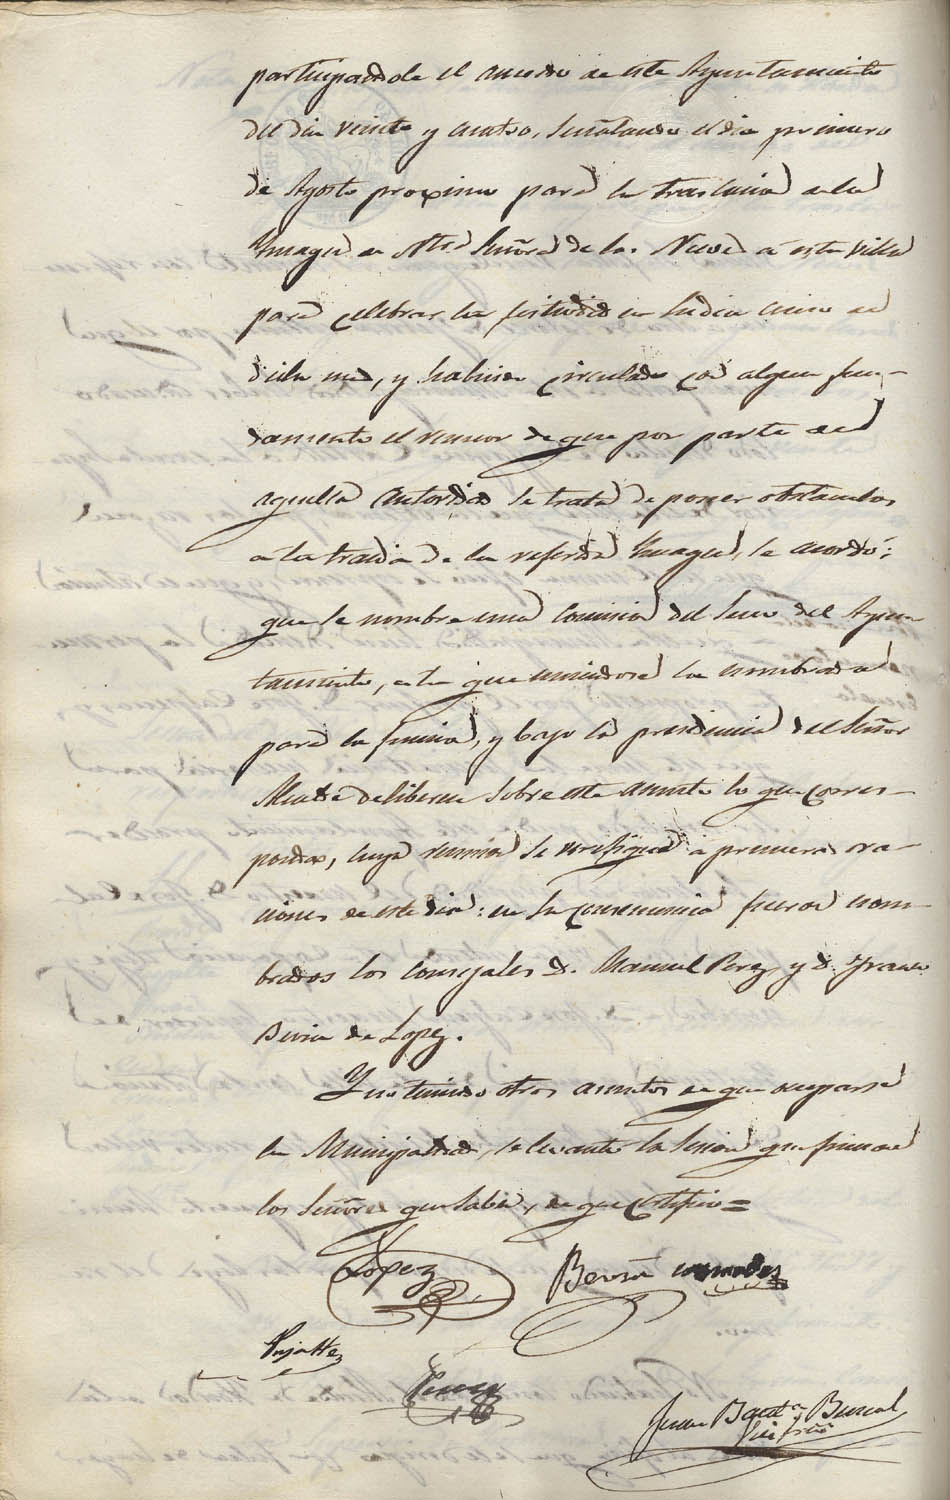 participandole el acuerdo de este Ayuntamiento
del dia veinte y cuatro, señalando el dia primero
de Agosto proximo para la traslacion de la
Ymagen de Ntra Señora de las Nieves a esta Villa
para celebrar la festividad en su dia cinco de
dicho mes, y habiendo circulado con algun fun-
damento el rumor de que por parte de
aquella autoridad se trata de poner obstaculos
a la traida de la referida Ymagen, se acordó:
que se nombre una comision del Seno del Ayun-
tamiento, a la que asociandose la nombrada
para la funcion, y bajo la presidencia del Señor
Alcalde delibere sobre este asunto lo que corres-
ponda, cuya reunion se verifique a primeras ora-
ciones de este dia: en su consecuencia fueron nom-
brados los consejales D. Manuel Perez y D. Franco
Beviá de Lopez.
Y no teniendo otros asuntos de que ocuparse
la Municipalidad, se levantó la Sesion que firman
los Señores que saben, de que certifico=
Lopez
Beviá
Pujalte
Juan Bauta Buscal